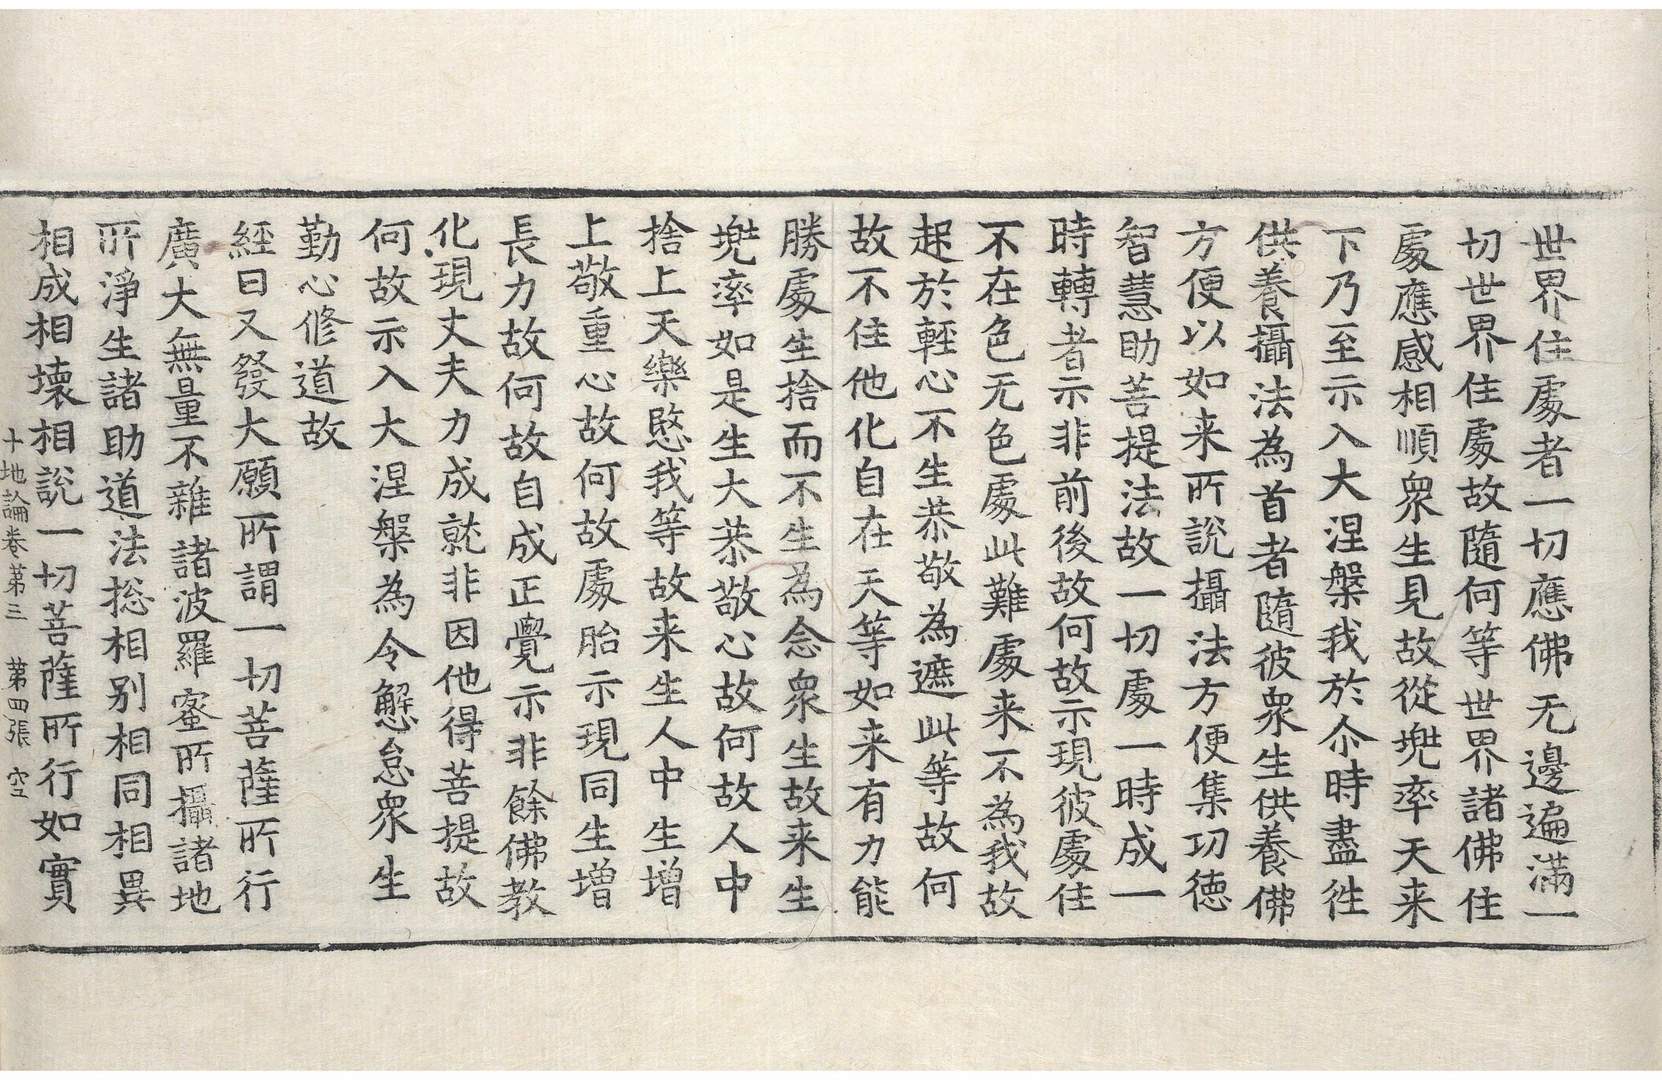 世界住處者一切應佛无邊遍滿一
切世界住處故隨何等世界諸佛住
處應感相順衆生見故從兠率天来
下乃至示入大涅槃我於尒時盡徃
供養攝法為首者隨彼衆生供養佛
方便以如来所說攝法方便集功德
智慧助菩提法故一切處一時成一
時轉者示非前後故何故示現彼處住
不在色无色處此難處来不為我故
起於輕心不生恭敬為遮此等故何
故不住他化自在天等如来有力能
勝處生捨而不生為念衆生故来生
兠率如是生大恭敬心故何故人中
捨上天樂愍我等故来生人中生增
上敬重心故何故處胎示現同生增
長力故何故自成正覺示非餘佛教
化現丈夫力成就非因他得菩提故
何故示入大涅槃為令懈怠衆生
勤心修道故
經曰又發大願所謂一切菩薩所行
廣大無量不雜諸波羅蜜所攝諸地
所淨生諸助道法捴相别相同相異
相成相壞相說一切菩薩所行如實
十地論卷第三　第四張　空